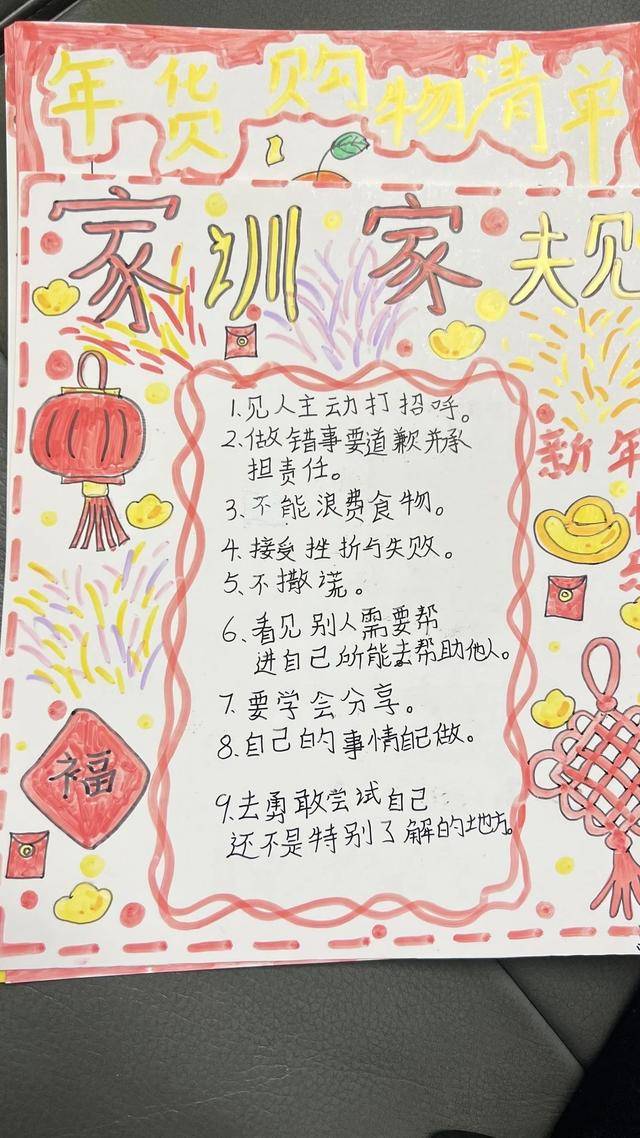 年货购物清单
家训家规
1.见人主动打招呼。
2.做错事要道歉并承
担责任。
3.不能浪费食物。
4.接受挫折与失败。
5.不撒谎。
6.看见别人需要帮
进自己所能去帮助他人。
7.要学会分享。
8.自己的事情自己做。
9.去勇敢尝试自己
还不是特别了解的地方。
新年
福